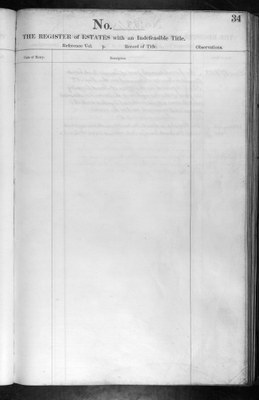 34
No.
THE REGISTER of ESTATES with an Indefeasible Title,
Reference Vol. p. Record of Title. Observations
Date of Entry. Description.